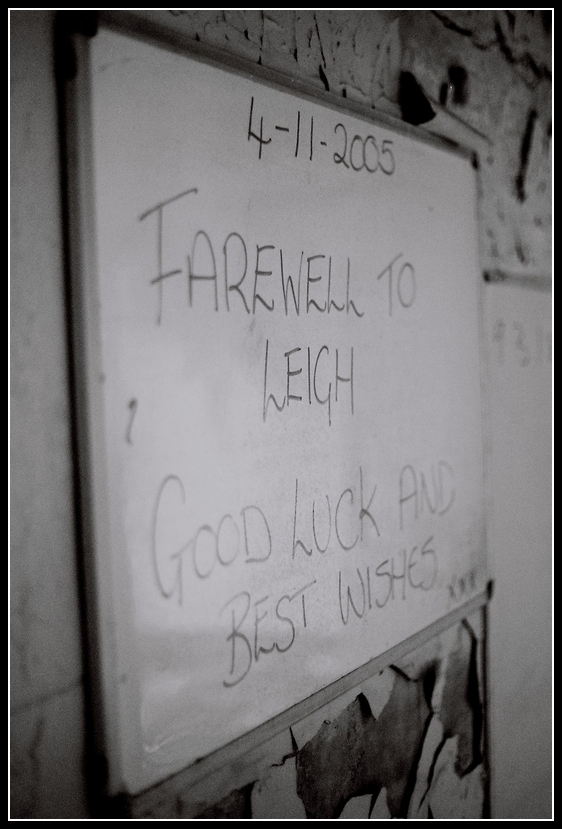 4-11-2005
FAREWELL TO
LEIGH
GOOD LUCK AND
BEST WISHES xxx